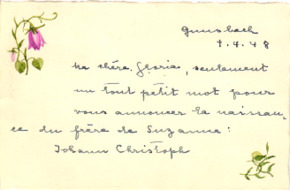 Gunsbach
9.4.48
Ma chère Gloria, seulement
un tout petit mot pour
vous annoncer la naissan,
ce du frère de Suzanne:
Johann Christoph